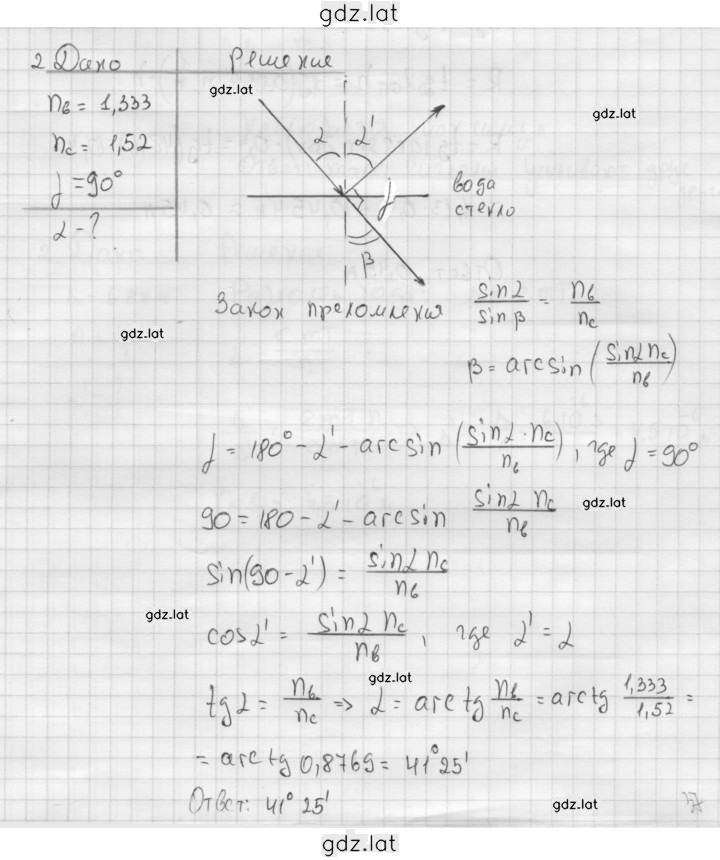 gdz.lat
2 Дано Решение
gdz.lat
nв = 1,333
gdz.lat
nс = 1,52
α α'
γ = 90°
вода
γ
стекло
α - ?
β
Закон преломления sinα/sinβ = nв/nс
gdz.lat
β = arcsin (sinα nс/nв)
γ = 180° - α' - arcsin (sinα · nс/nв), где γ = 90°
90 = 180 - α' - arcsin sinα nс/nв
gdz.lat
sin(90 - α') = sinα nс/nв
gdz.lat
cosα' = sinα nс/nв, где α' = α
gdz.lat
tgα = nв/nс => α = arctg nв/nс = arctg 1,333/1,52 =
= arctg 0,8769 = 41°25'
Ответ: 41° 25'
gdz.lat
gdz.lat